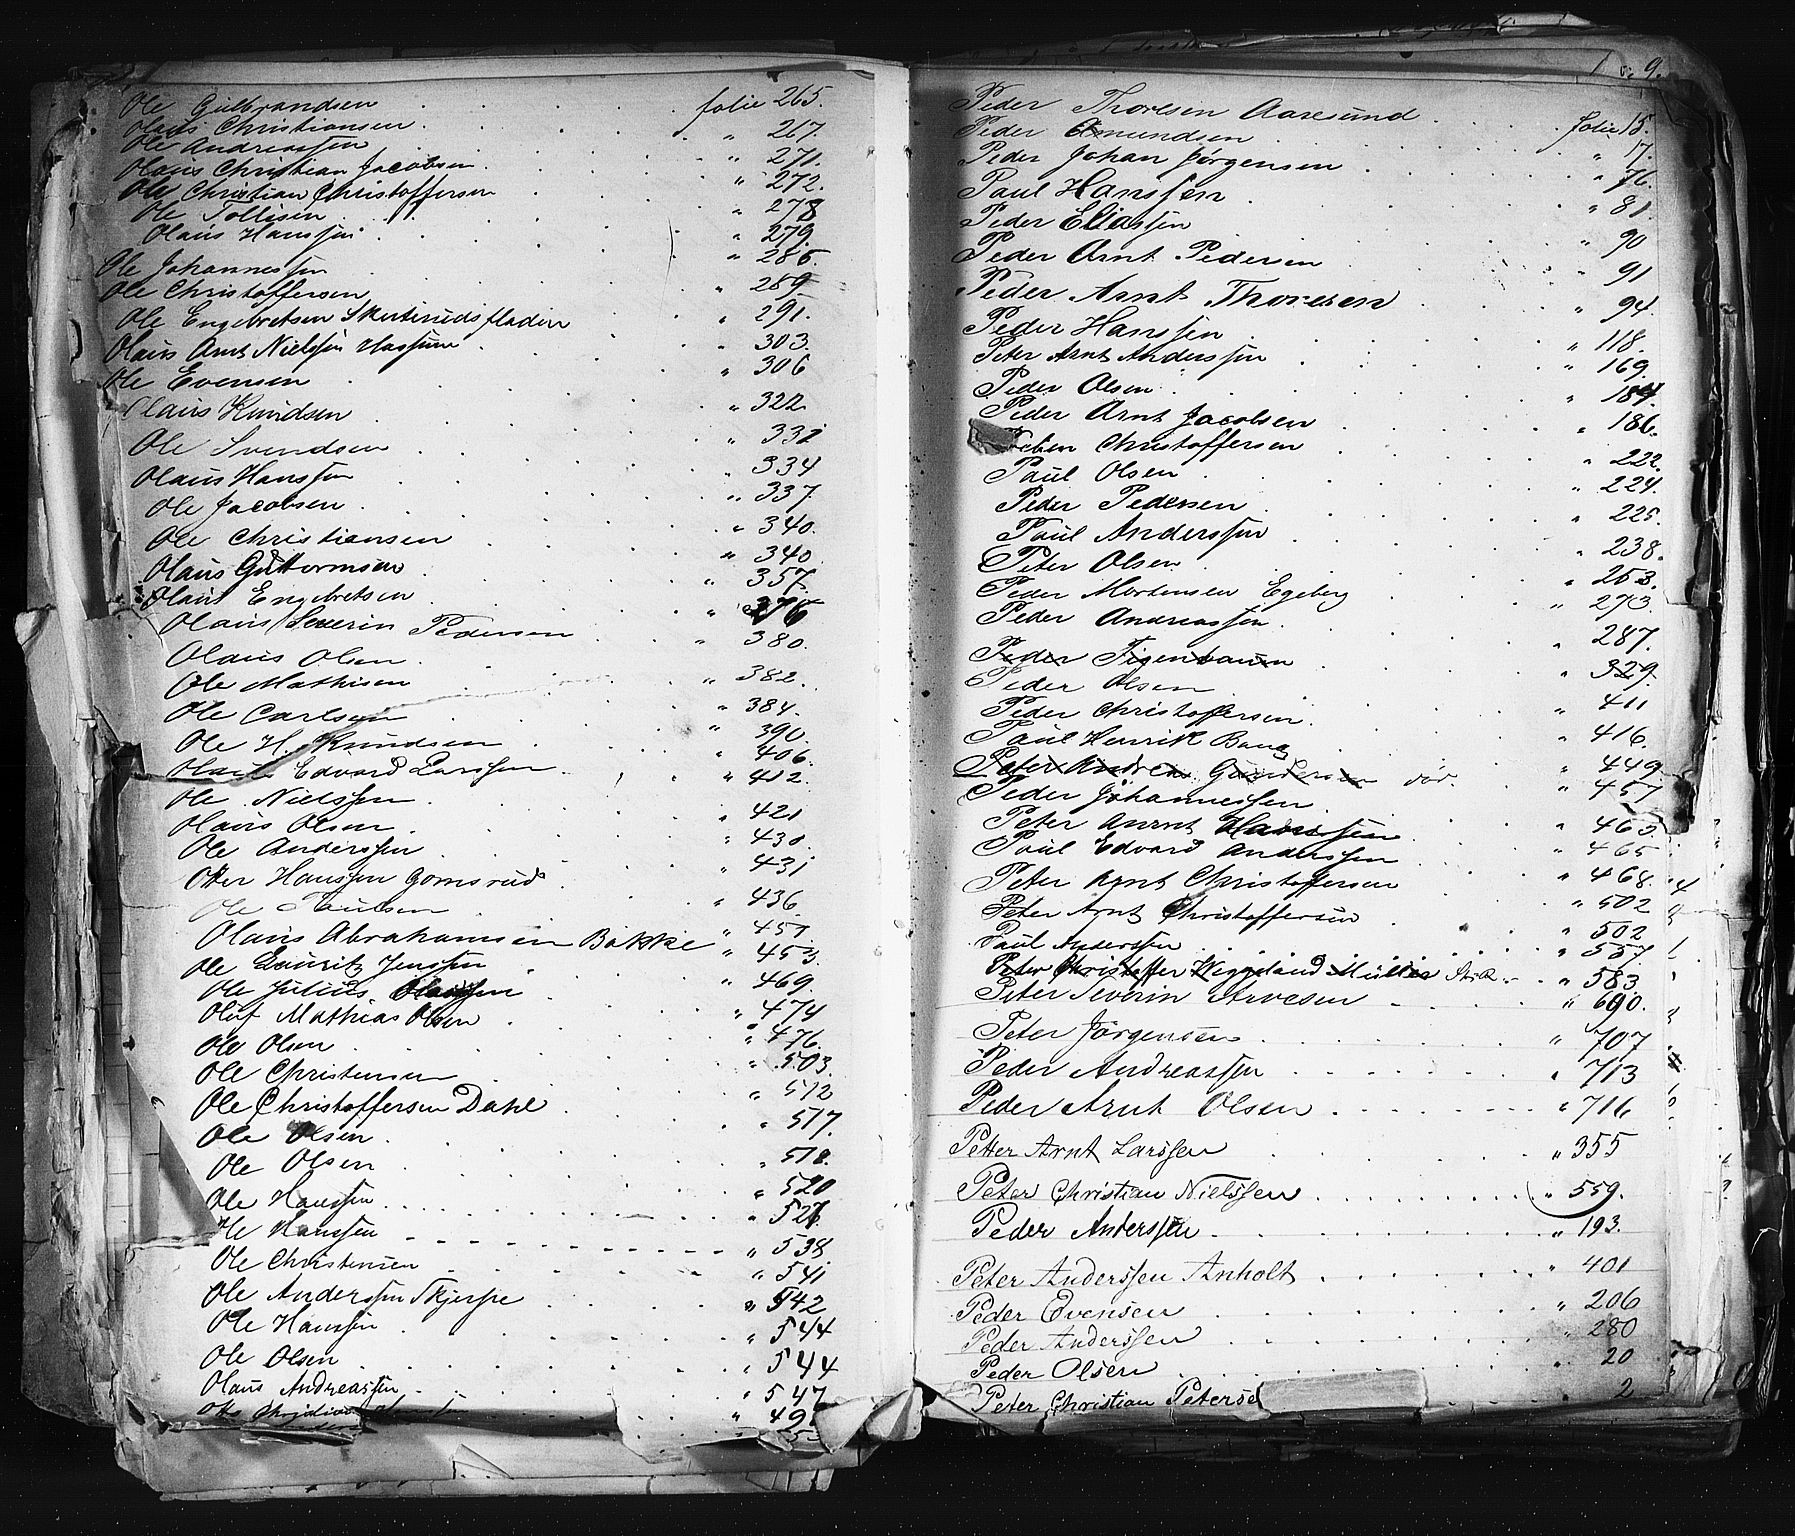 Ole Gulbrandsen . . . . folie 265.
Olaus Christiansen . . . . " 267.
Ole Andreassen . . . . " 271.
Olaus Christian Jacobsen . . . . " 272.
Ole Christian Christoffersen . . . . " 278
Ole Tollisen . . . . " 279.
Olaus Hanssen . . . . " 285.
Ole Johannessen . . . . " 289
Ole Christoffersen . . . . " 291.
Ole Engebretsen Skuterudsfladen . . . . " 303.
Olaus Arnt Nielssen Hassum . . . . " 306
Ole Evensen . . . . " 322.
Olaus Knudsen . . . . " 331
Ole Svendsen . . . . " 334
Olaus Hanssen . . . . " 337.
Ole Jacobsen . . . . " 340.
Ole Christiansen . . . . " 340.
Olaus Guttormsen . . . . " 357.
Olaus Engebretsen . . . . " 376
Olaus Severin Pedersen . . . . " 380.
Olaus Olsen . . . . " 382.
Ole Mathisen . . . . " 384.
Ole Carlsen . . . . " 390.
Ole H. Knudsen . . . . " 406.
Olaus Edvard Larssen . . . . " 412.
Ole Nielssen . . . . " 421
Olaus Olsen . . . . " 430.
Ole Anderssen . . . . " 431
Otter Hanssen Gomsrud . . . . " 436
Ole Paulsen . . . . " 451
Olaus Abrahamsen Bakke " 453.
Ole Lauritz Jenssen . . . . " 469.
Ole Julius . . . . " 474
Oluf Mathias Olsen . . . . " 476.
Ole Olsen . . . . " 503.
Ole Christensen . . . . " 512
Ole Christoffersen Dahl . . . . " 517.
Ole Olsen . . . . " 518.
Ole Olsen . . . . " 520
Ole Hanssen . . . . " 526
Ole Hanssen . . . . " 538
Ole Christensen . . . . " 541
Ole Anderssen Skjerpe . . . . " 542
Ole Hanssen . . . . " 544
Ole Olsen . . . . " 544
Olaus Andreassen . . . . " 547
Otto
9.
Peder Thoresen Aaresund . . . . folie 15.
Peder Amundsen . . . . " 17.
Peder Johan Jørgensen . . . . " 76.
Paul Hanssen . . . . " 81.
Peder Eliassen . . . . " 90
Peder Arnt Pedersen . . . . " 91
Peder Arnt Thoresen . . . . " 94.
Peder Hanssen . . . . " 118.
Peter Arnt Anderssen . . . . " 169.
Peder Olsen . . . . " 184
Peder Arnt Jacobsen . . . . " 186.
Christoffersen . . . . " 222.
Paul Olsen . . . . " 224.
Peder Pedersen . . . . " 225.
Paul Anderssen . . . . " 238.
Peter Olsen . . . . " 253.
Peder Mortensen Egeberg . . . . " 273.
Peder Andreassen . . . . " 287.
Peder Figenbaum . . . . " 329.
Peder Olsen . . . . " 411
Peder Christoffersen . . . . " 416.
Paul Henrik Bang . . . . " 449
Peter Andrea Gundersen død. " 457
Peder Johannessen . . . . " 463.
Peter Arnt Hanssen . . . . " 465
Paul Edvard Anderssen . . . . " 468.
Peter Arnt Christoffersen . . . . " 502
Peter Arnt Christoffersen . . . . " 502
Paul Anderssen . . . . " 557
Peter Christoffer Weggeland Müller . . . . " 583.
Peter Severin Arvesen . . . . " 690.
Peter Jørgensen . . . . " 707
Peder Andreassen . . . . " 713
Peder Arnt Olsen . . . . " 716
Petter Arnt Larssen . . . . " 355
Peter Christian Nielssen . . . . " 559.
Peder Anderssen . . . . " 193.
Peter Anderssen Anholt . . . . " 401
Peder Evensen . . . . " 206
Peder Anderssen . . . . " 280
Peder Olsen . . . . " 20
Peter Christian Peterse . . . . " 2